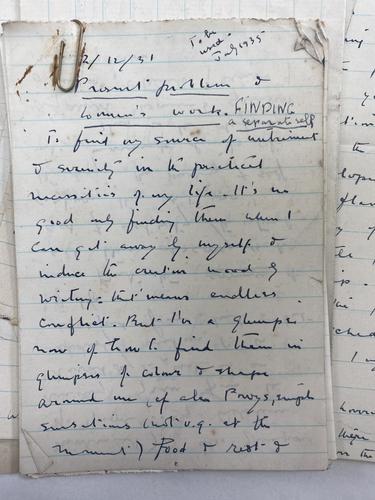 2/12/31
To be
used.
July 1935
Present problem &
Women's work. FINDING
a separate self
To find my source of nutriment
& serenity in the practical
necessities of my life. It's no
good only finding them when I
can get away by myself &
induce the creative mood by
writing: that means endless
conflict. But I've a glimpse
now of how to find them in
glimpses of colour & shape
around me, cf also Powys, simple
sensations (not v.g. at the
moment) Food & rest &